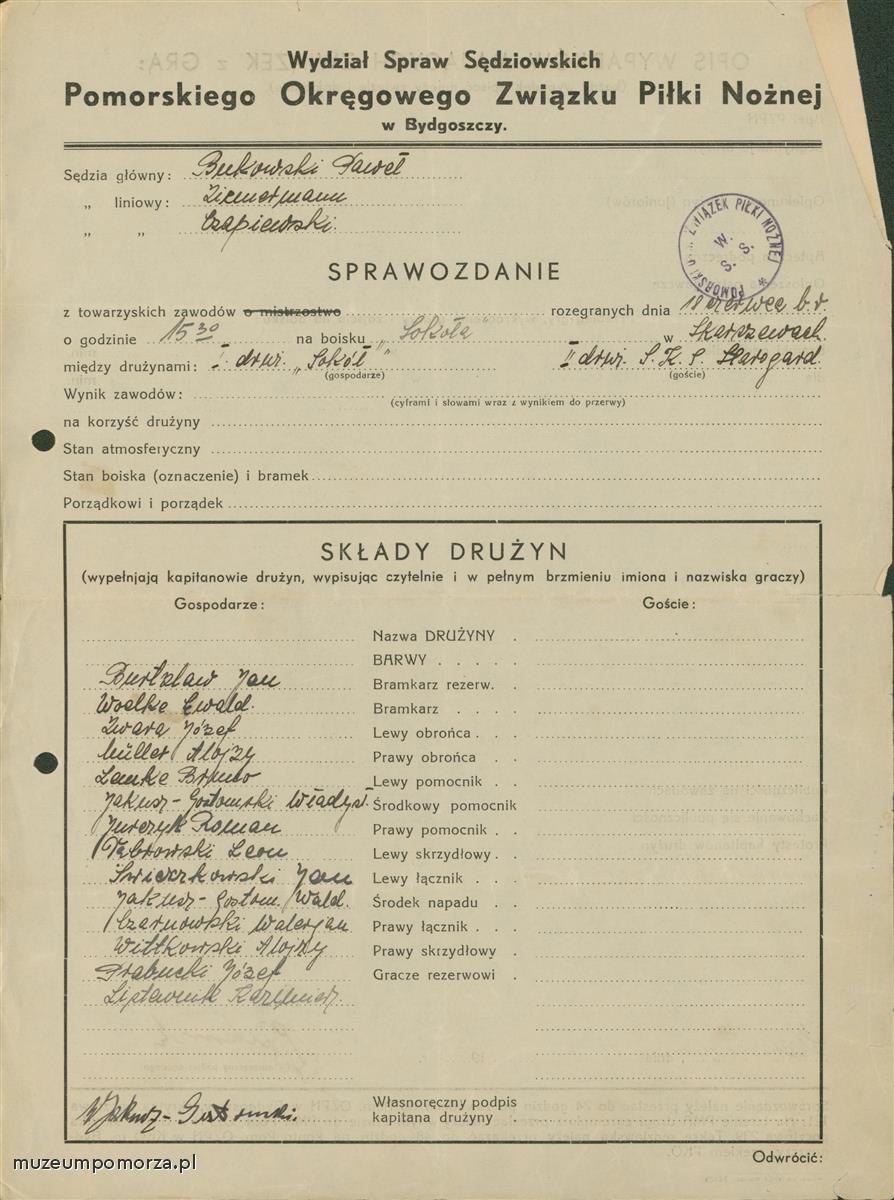 Wydział Spraw Sędziowskich
Pomorskiego Okręgowego Związku Piłki Nożnej
w Bydgoszczy.
Sędzia główny: Bukowski Paweł
„ liniowy: Ziemermann
„ „ Czapiewski.
POMORSKI ZWIĄZEK PIŁKI NOŻNEJ
W. S. S.
SPRAWOZDANIE
z towarzyskich zawodów o mistrzostwo rozegranych dnia 18 czerwca b.r.
o godzinie 15 30 na boisku „Sokoła" w Skarszewach.
między drużynami: I druż. „Sokół" II druż. S. K. S. Starogard.
(gospodarze) (goście)
Wynik zawodów:
(cyframi i słowami wraz z wynikiem do przerwy)
na korzyść drużyny
Stan atmosferyczny
Stan boiska (oznaczenie) i bramek
Porządkowi i porządek
SKŁADY DRUŻYN
(wypełnjają kapitanowie drużyn, wypisując czytelnie i w pełnym brzmieniu imiona i nazwiska graczy)
Gospodarze: Goście:
Nazwa DRUŻYNY
BARWY
Jan Bramkarz rezerw.
Woelke Ewald. Bramkarz
Żwara Józef Lewy obrońca
Müller Alojzy Prawy obrońca
Lemke Bruno Lewy pomocnik
Jakusz-Gostomski Władysł. Środkowy pomocnik
Jurczyk Roman Prawy pomocnik
Dąbrowski Leon Lewy skrzydłowy
Świeczkowski Jan Lewy łącznik
Jakusz-Gostom. Wald. Środek napadu
Czarnowski Walerjan Prawy łącznik
Wittkowski Alojzy Prawy skrzydłowy
Grabucki Józef Gracze rezerwowi
Kazimierz.
W Jakusz-Gostomski. Własnoręczny podpis
kapitana drużyny
Odwrócić:
muzeumpomorza.pl